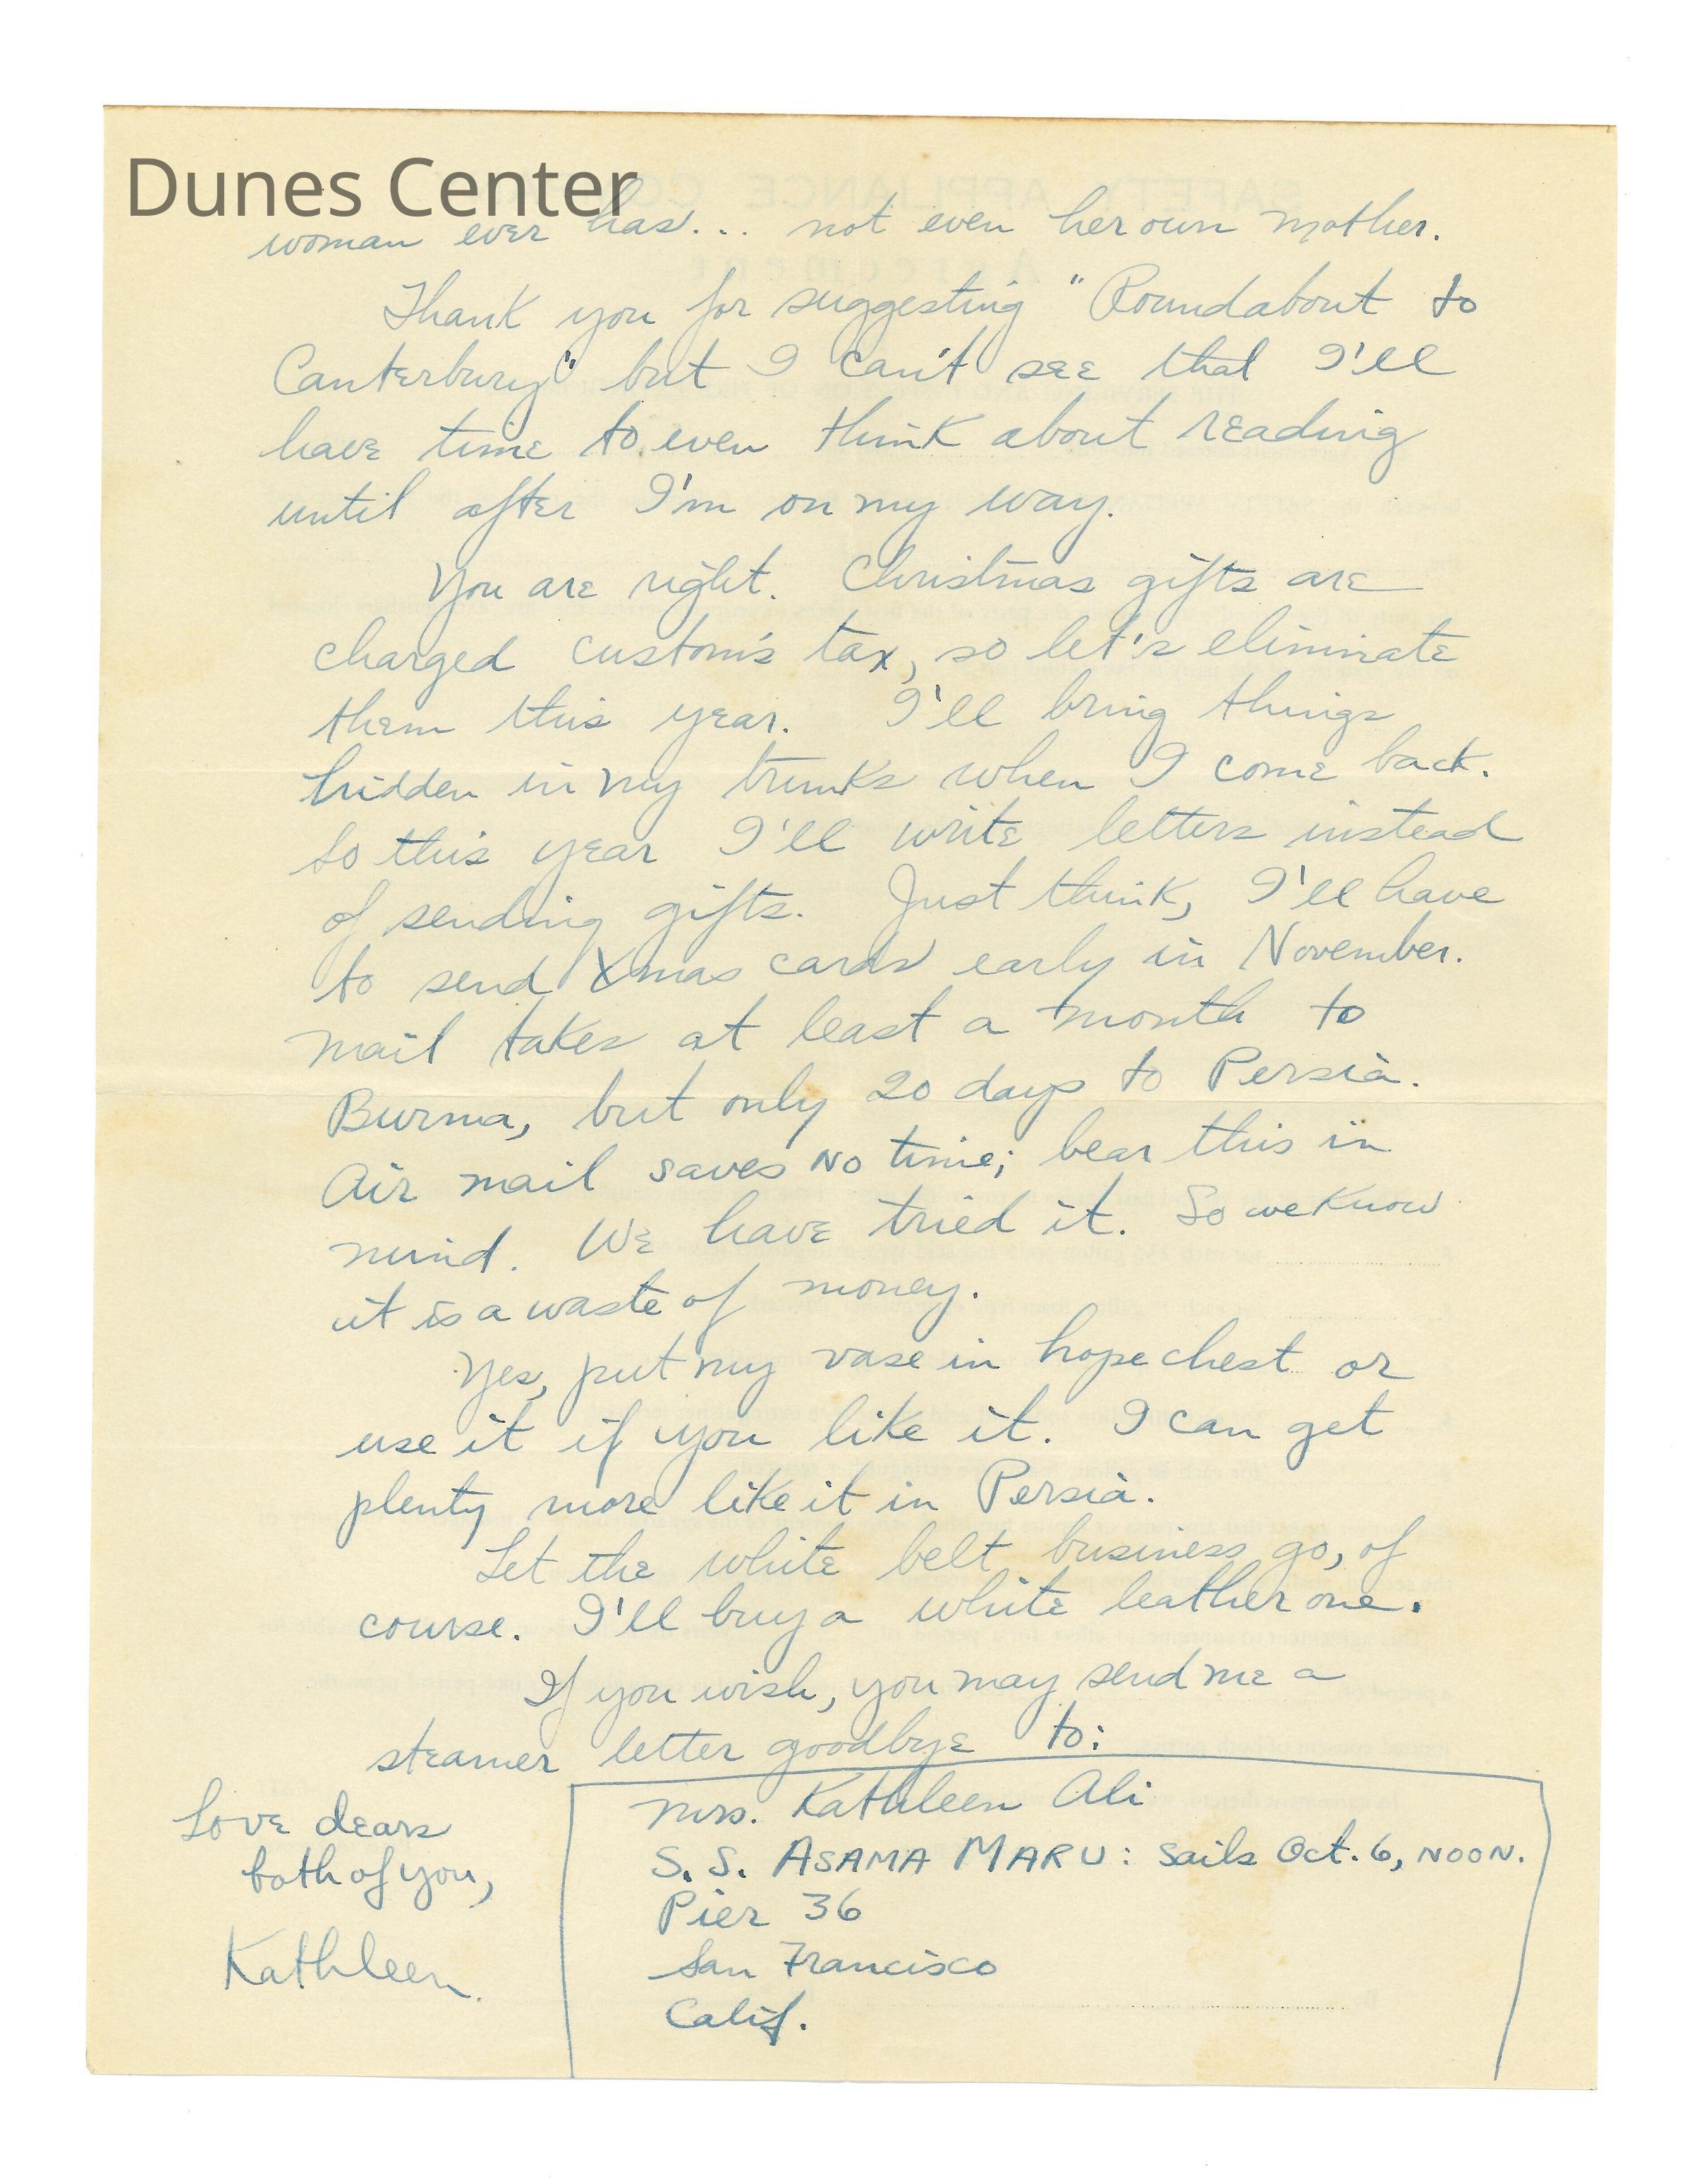 Dunes Center
woman ever has... not even her own mother.
Thank you for suggesting "Roundabout to
Canterbury" but I can't see that I'll
have time to even think about reading
until after I'm on my way.
You are right. Christmas gifts are
charged custom's tax, so let's eliminate
them this year. I'll bring things
hidden in my trunks when I come back.
So this year I'll write letters instead
of sending gifts. Just think, I'll have
to send Xmas cards early in November.
Mail takes at least a month to
Burma, but only 20 days to Persia.
Air mail saves NO time; bear this in
mind. We have tried it. So we know
it is a waste of money.
Yes, put my vase in hope chest or
use it if you like it. I can get
plenty more like it in Persia.
Let the white belt business go, of
course. I'll buy a white leather one.
If you wish, you may send me a
steamer letter goodbye to:
Mrs. Kathleen Ali
S.S. ASAMA MARU: Sails Oct. 6, NOON.
Pier 36
San Francisco
Calif.
Love dears
both of you,
Kathleen.